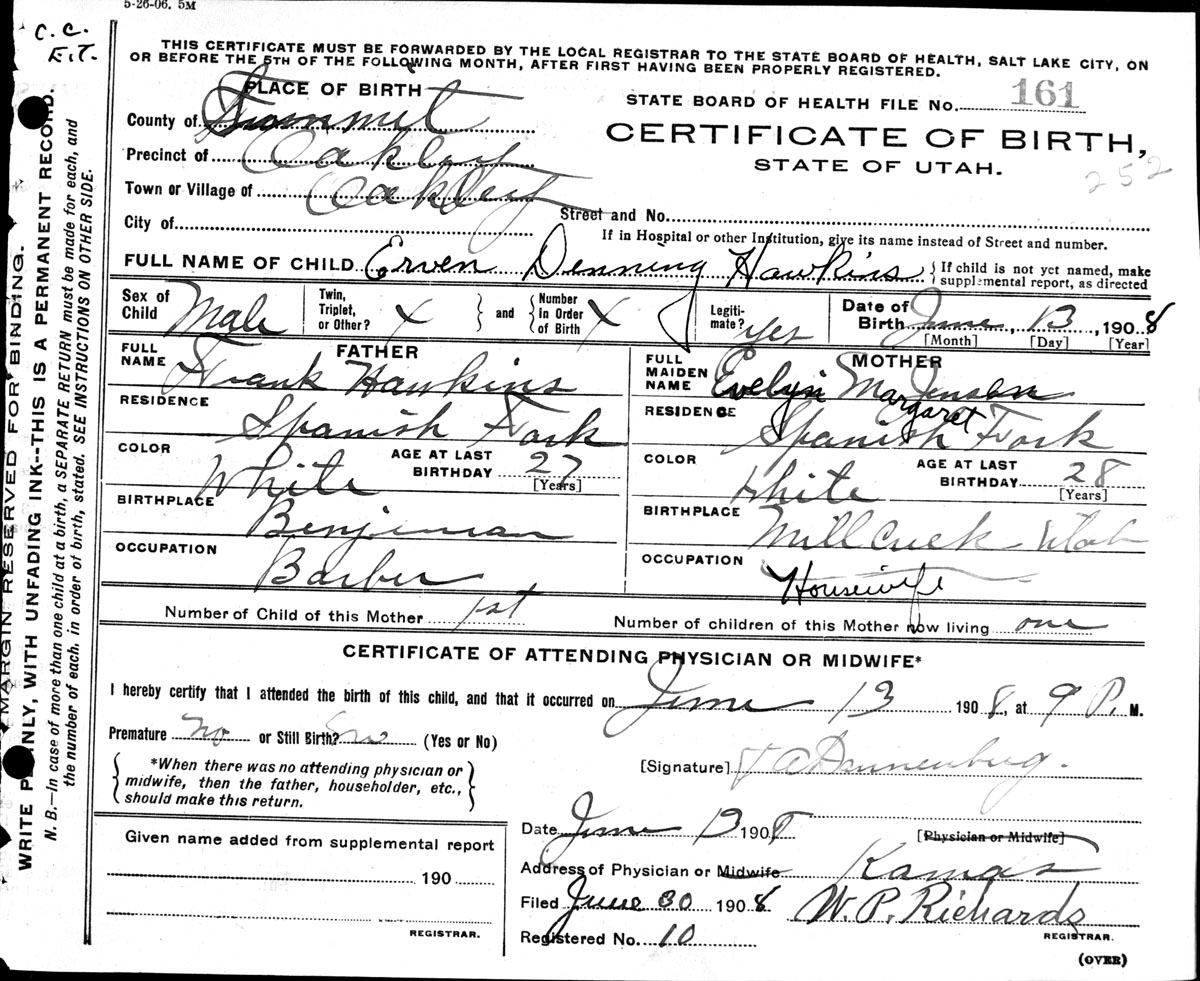 5-26-06. 5M
C. C.
E.T.
THIS CERTIFICATE MUST BE FORWARDED BY THE LOCAL REGISTRAR TO THE STATE BOARD OF HEALTH, SALT LAKE CITY, ON
OR BEFORE THE 5TH OF THE FOLLOWING MONTH, AFTER FIRST HAVING BEEN PROPERLY REGISTERED.
PLACE OF BIRTH
STATE BOARD OF HEALTH FILE No. 161
County of Summit
CERTIFICATE OF BIRTH,
Precinct of Oakley
STATE OF UTAH.
252
Town or Village of Oakley
Street and No.
City of
If in Hospital or other Institution, give its name instead of Street and number.
FULL NAME OF CHILD Erven Denning Hawkins { If child is not yet named, make
supplemental report, as directed
Sex of Child Male Twin, Triplet, or Other? X } and { Number in Order of Birth X Legiti-mate? Yes Date of Birth June, 13, 1908
[Month] [Day] [Year]
FATHER
FULL NAME Frank Hawkins
MOTHER
FULL MAIDEN NAME Evelyn Margaret Jensen
RESIDENCE Spanish Fork
RESIDENCE Spanish Fork
COLOR White AGE AT LAST BIRTHDAY 27 [Years]
COLOR White AGE AT LAST BIRTHDAY 28 [Years]
BIRTHPLACE Benjiman
BIRTHPLACE Mill Creek Utah
OCCUPATION Barber
OCCUPATION Housewife
Number of Child of this Mother 1st
Number of children of this Mother now living one
CERTIFICATE OF ATTENDING PHYSICIAN OR MIDWIFE*
I hereby certify that I attended the birth of this child, and that it occurred on June 13 1908, at 9 P. M.
Premature no or Still Birth? no (Yes or No)
{ *When there was no attending physician or
midwife, then the father, householder, etc.,
should make this return. }
[Signature] Dannenburg.
Date June 13 1908 [Physician or Midwife]
Given name added from supplemental report
190
REGISTRAR.
Address of Physician or Midwife Kamas
Filed June 30 1908 W. P. Richards
REGISTRAR.
Registered No. 10
(OVER)
MARGIN RESERVED FOR BINDING.
WRITE PLAINLY, WITH UNFADING INK--THIS IS A PERMANENT RECORD.
N. B.—In case of more than one child at a birth, a SEPARATE RETURN must be made for each, and
the number of each, in order of birth, stated. SEE INSTRUCTIONS ON OTHER SIDE.